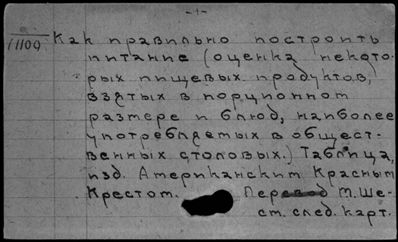 -1-
11109 Как правильно построить
питание (оценка некото-
рых пищевых продуктов,
взятых в порционном
размере и блюд, наиболее
употребляемых в общест-
венных столовых.) Таблица,
изд. Американским Красным
Крестом. Перевод М. Ше-
см. след. карт.